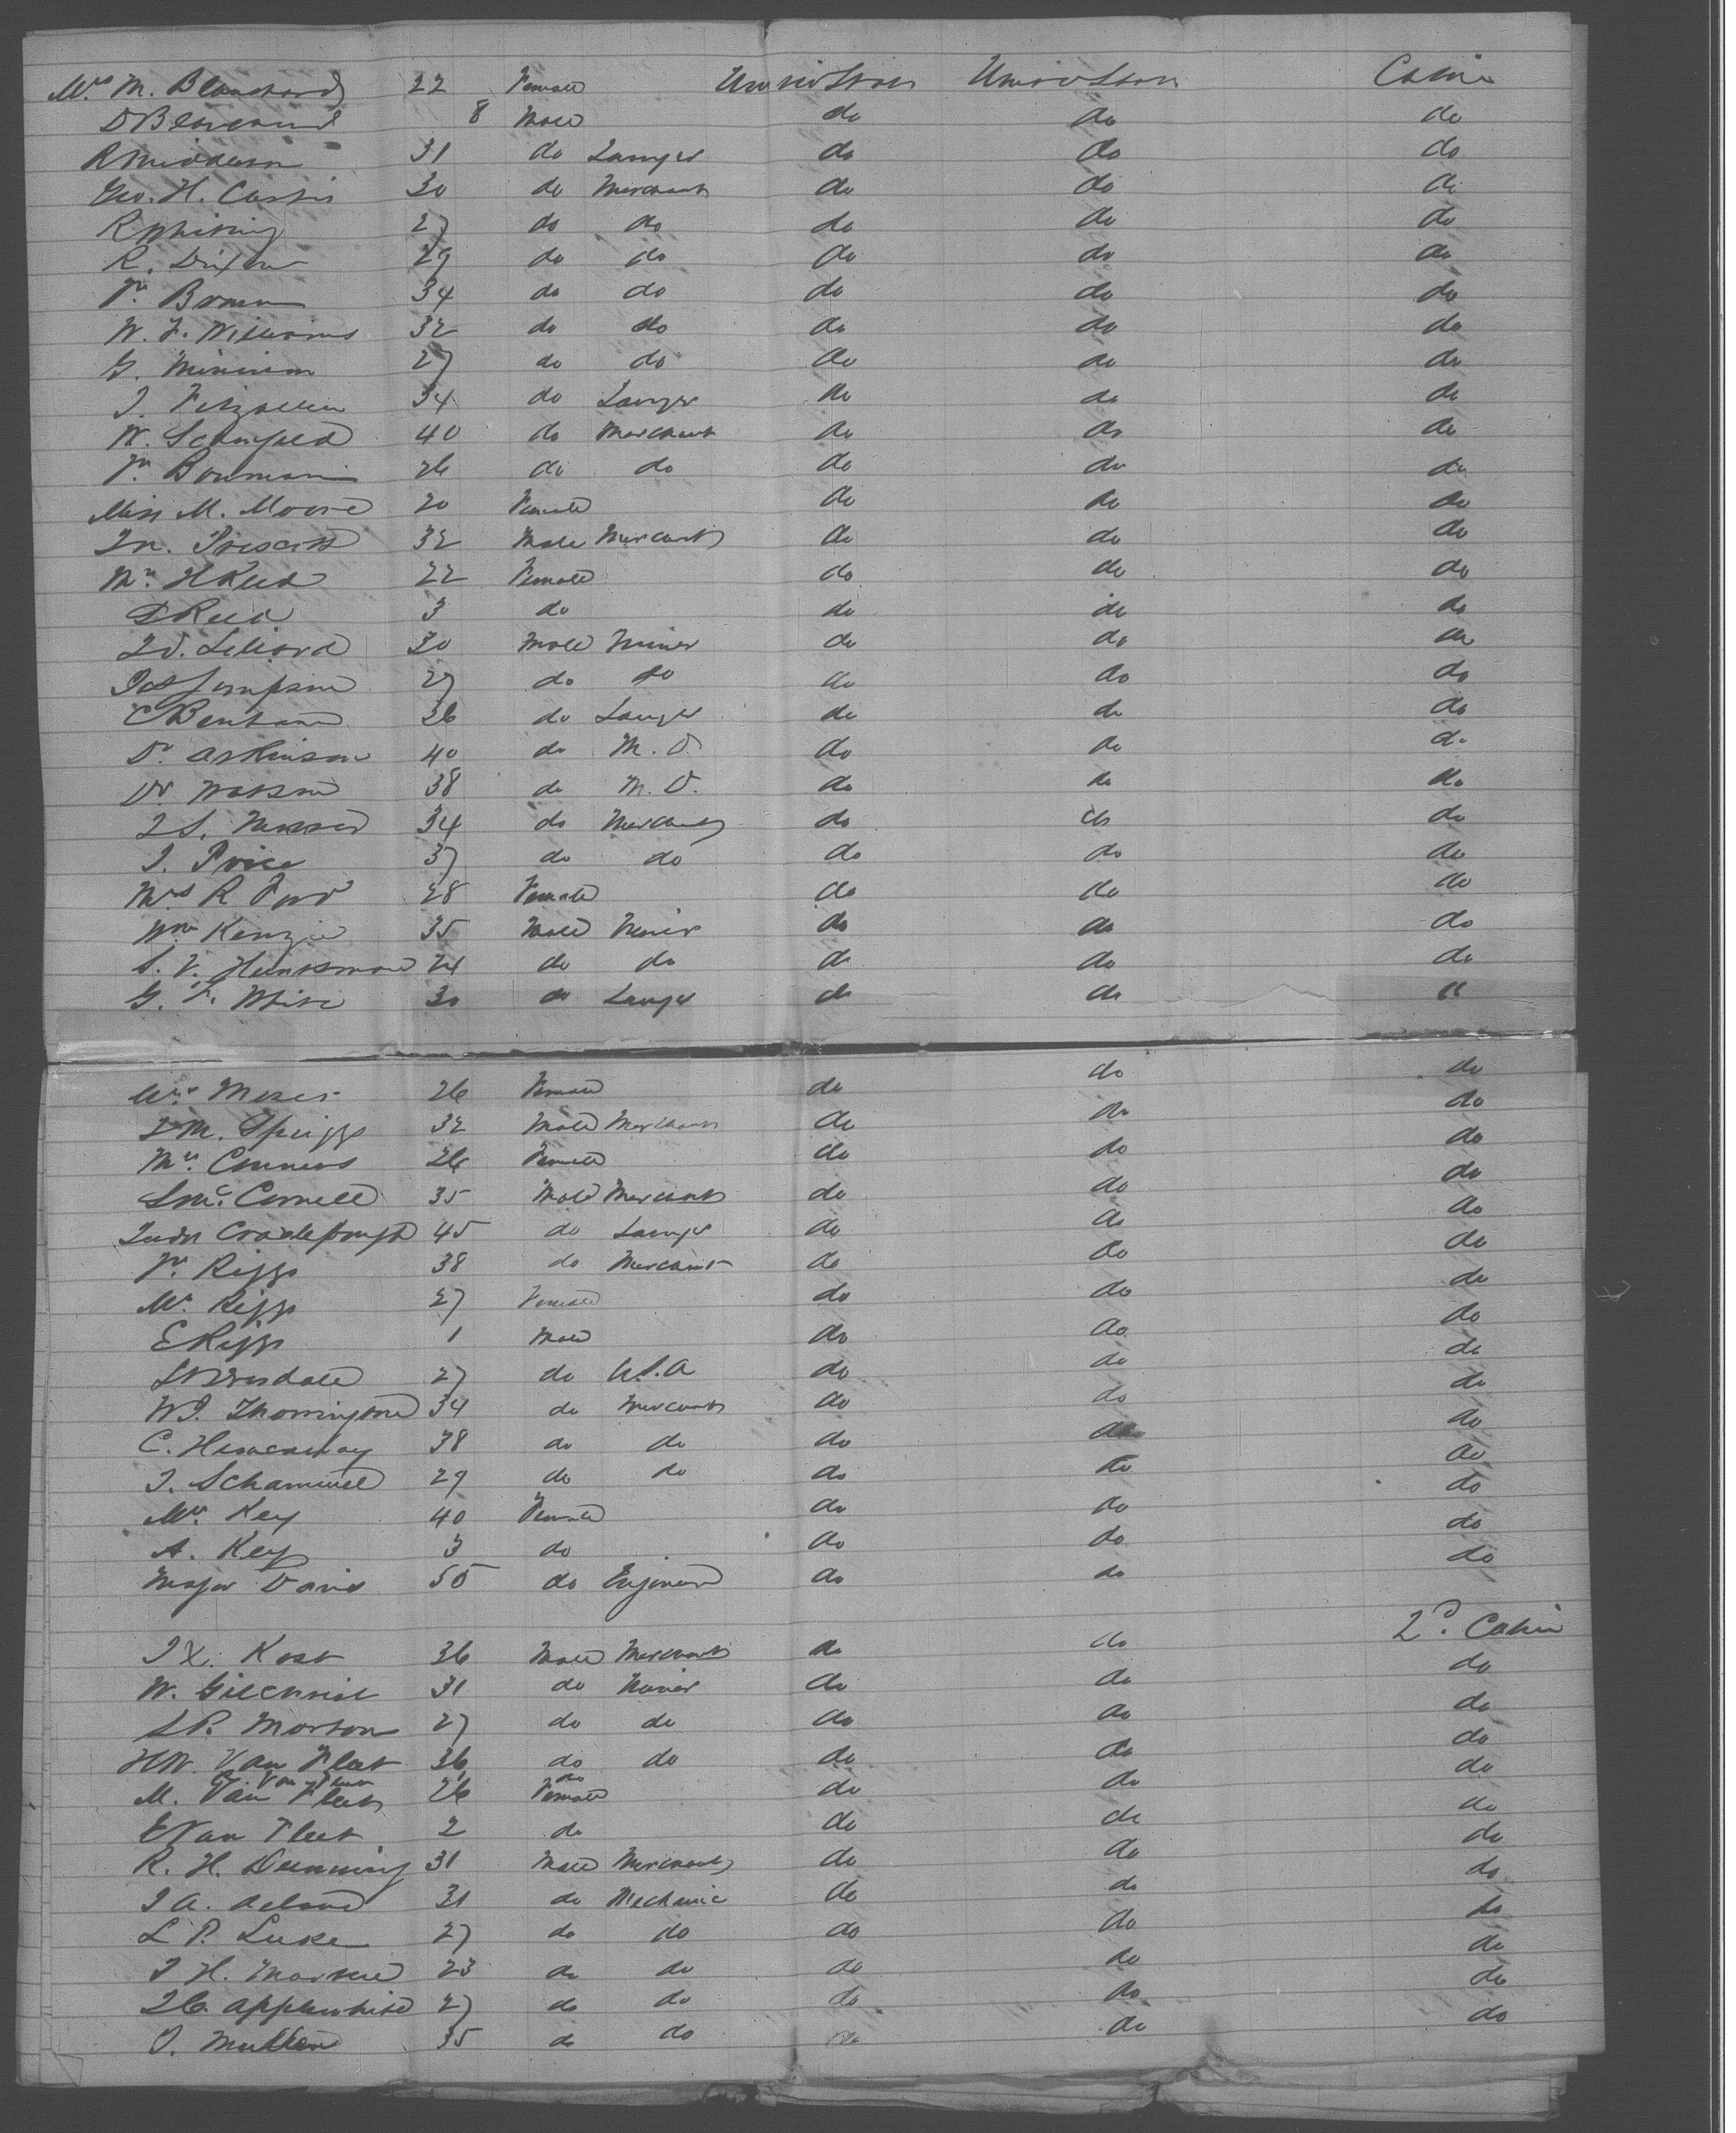 Mrs M. Blanchard 22 Female United States United States Cabin
D Blanchard 8 Male do do do
R 31 do Lawyer do do do
Geo. H. Curtis 30 do Merchant do do do
R Whiting 27 do do do do do
R. Dixon 29 do do do do do
Jn Brown 34 do do do do do
W. F. Williams 32 do do do do do
G. 27 do do do do do
J. 34 do Lawyer do do do
W. 40 do Merchant do do do
Jn Bowman 26 do do do do do
Miss M. Moore 20 Female do do do
Jn. Prescott 32 Male Merchant do do do
Mrs H Reed 22 Female do do do
Reed 3 do do do do
30 Male Miner do do do
27 do do do do do
C Benham 36 do Lawyer do do do
Dr Atkinson 40 do M. D. do do do
Dr Watson 38 do M. D. do do do
J S. 34 do Merchant do do do
J. Price 37 do do do do do
Mrs R Ford 28 Female do do do
Wm Kenzie 35 Male Miner do do do
S. V. Huntsman 24 do do do do do
G. F. White 30 do Lawyer do do "
Mrs Moses 26 Female do do do
J M. Spriggs 32 Male Merchant do do do
Mrs. Conners 26 Female do do do
McConnell 35 Male Merchant do do do
Judge Cradlebaugh 45 do Lawyer do do do
Jn Riggs 38 do Merchant do do do
Mrs Riggs 27 Female do do do
E Riggs 1 Male do do do
27 do U.S.A do do do
W J. Thorrington 34 do Merchant do do do
C. Hemenway 38 do do do do do
J. Schammel 29 do do do do do
Mrs Key 40 Female do do do
A. Key 3 do do do do
Major Davis 50 do Engineer do do do
J X. Kost 36 Male Merchant do do 2d. Cabin
W. Gilchrist 31 do Miner do do do
S P. Morton 27 do do do do do
H W. Van Fleet 36 do do do do do
Van Fleet do
M. Van Fleet 26 Female do do do
E Van Fleet 2 do do do do
R. H. Dunning 31 Male Merchant do do do
J A. 31 do Mechanic do do do
L P. Luke 27 do do do do do
J H. 23 do do do do do
Applewhite 27 do do do do do
J. 35 do do do do do